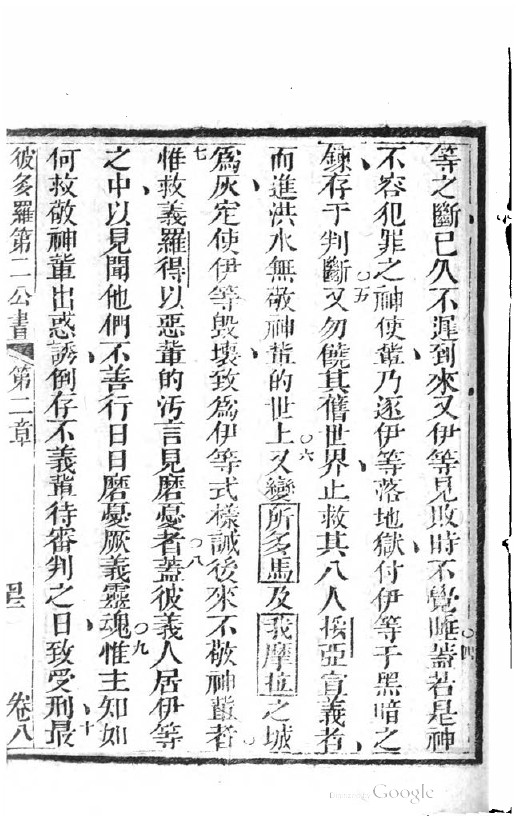 等之斷已久不遲到來又伊等見敗時不覺睡蓋若是神
不容犯罪之神使輩乃逐伊等落地獄付伊等于黑暗之
鍊存于判斷又勿饒其舊世界止救其八人挼亞宣義者
而進洪水無敬神輩的世上又變所多馬及我摩拉之城
爲灰定使伊等毀壞致爲伊等式樣誡後來不敬神輩者
惟救義羅得以惡輩的污言見磨憂者蓋彼義人居伊等
之中以見聞他們不善行日日磨憂厥義靈魂惟主知如
何救敬神輩出惑誘倒存不義輩待審判之日致受刑最
彼多羅第二公書 第二章 卷八
Digitized by Google